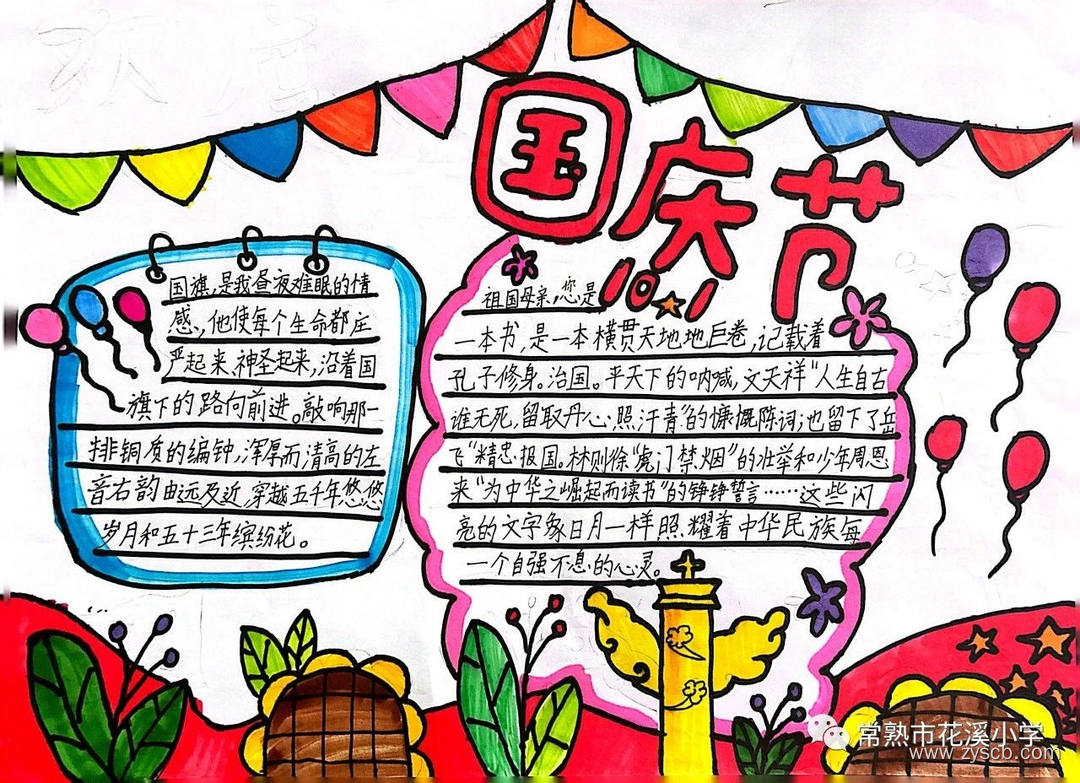 国庆节
10.1
国旗,是我昼夜难眠的情
感,他使每个生命都庄
严起来,神圣起来,沿着国
旗下的路向前进。敲响那一
排铜质的编钟,浑厚而清高的左
音右韵由远及近,穿越五千年悠悠
岁月和五十三年缤纷花。
祖国母亲,您是
一本书,是一本横贯天地地巨卷,记载着
孔子修身。治国。平天下的呐喊,文天祥“人生自古
谁无死,留取丹心照汗青”的慷慨陈词;也留下了岳
飞“精忠报国。林则徐“虎门禁烟”的壮举和少年周恩
来“为中华之崛起而读书”的铮铮誓言……这些闪
亮的文字象日月一样照耀着中华民族每
一个自强不息的心灵。
常熟市花溪小学
www.zyscb.com